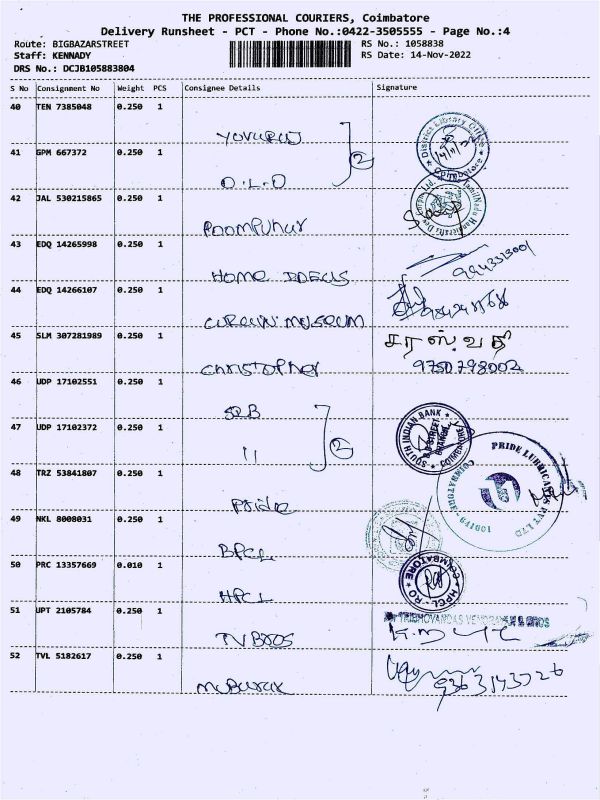 THE PROFESSIONAL COURIERS, Coimbatore
Delivery Runsheet - PCT - Phone No.:0422-3505555 - Page No.:4
Route: BIGBAZARSTREET
RS No.: 1058838
Staff: KENNADY
RS Date: 14-Nov-2022
DRS No.: DCJB105883804
S No Consignment No Weight PCS Consignee Details Signature
40 TEN 7385048 0.250 1
41 GPM 667372 0.250 1 D.L.O
42 JAL 530215865 0.250 1 Poompuhur
43 EDQ 14265998 0.250 1 Home IDEUS
44 EDQ 14266107 0.250 1 MUSEUM
45 SLM 307281989 0.250 1 Christopher சரஸ்வதி
9750798002
46 UDP 17102551 0.250 1 SIB
SOUTH INDIAN BANK
COIMBATORE
47 UDP 17102372 0.250 1 11 2
PRIDE LUBRICANTS PVT LTD
COIMBATORE - 641001
48 TRZ 53841807 0.250 1 Pride
49 NKL 8008031 0.250 1 BPCL
50 PRC 13357669 0.010 1 HPCL
HPCL - RO COIMBATORE
51 UPT 2105784 0.250 1 TV BROS
52 TVL 5182617 0.250 1 Muburak